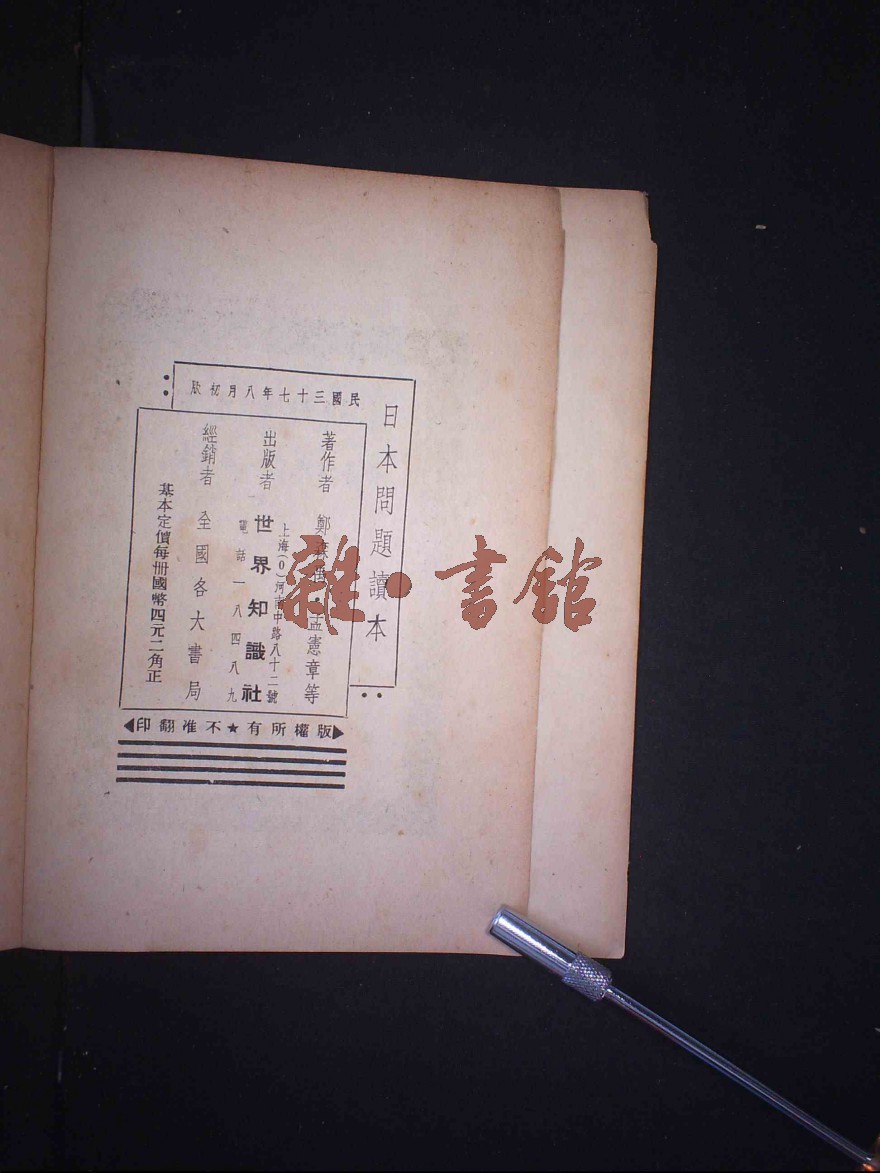 日本問題讀本
民國三十七年八月初版
著作者 鄭森禹·孟憲章等
出版者 世界知識社
上海(0)河南中路八十二號
電話一八四八九
經銷者 全國各大書局
基本定價每冊國幣四元二角正
版權所有★不准翻印
雜·書館